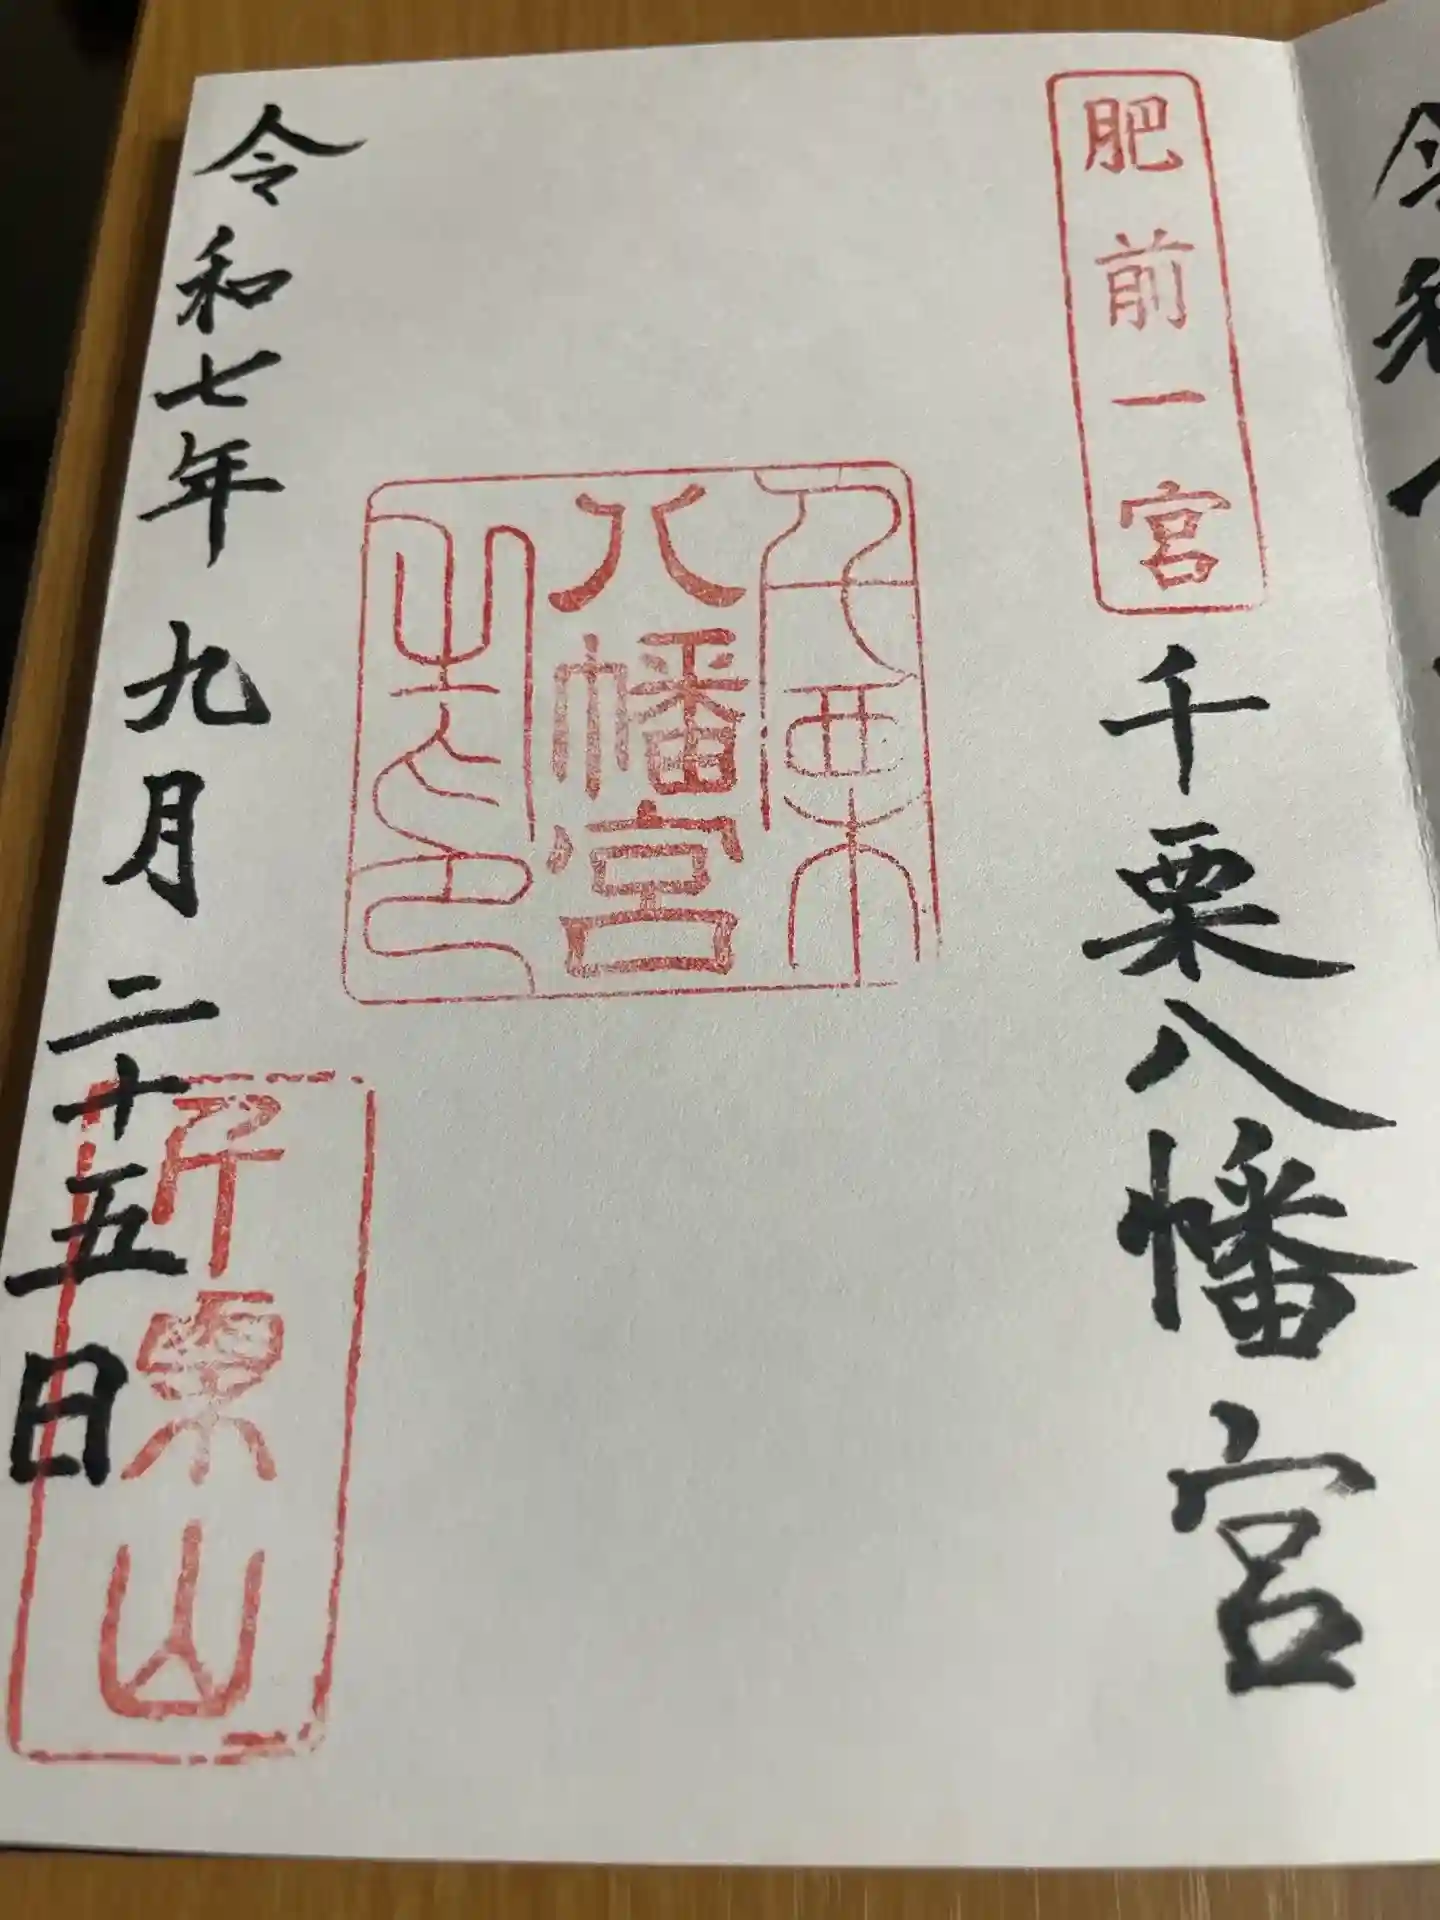 肥前一宮
千栗八幡宮
千栗
八幡宮
之印
令和七年 九月 二十五日
千栗山
令和